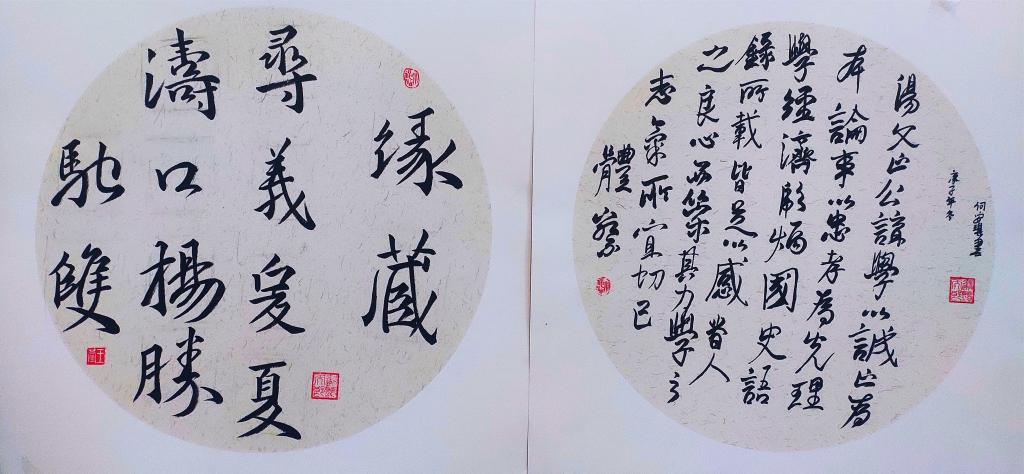 緣藏
尋義爰夏
濤口楊勝
馳雙
湯文正公講學以誠正為
本論事以忠孝為先理
學經濟彪炳國史語
錄所載皆足以感人
之良心而策其力學之
志氣所宜切己
體察
庚子年冬